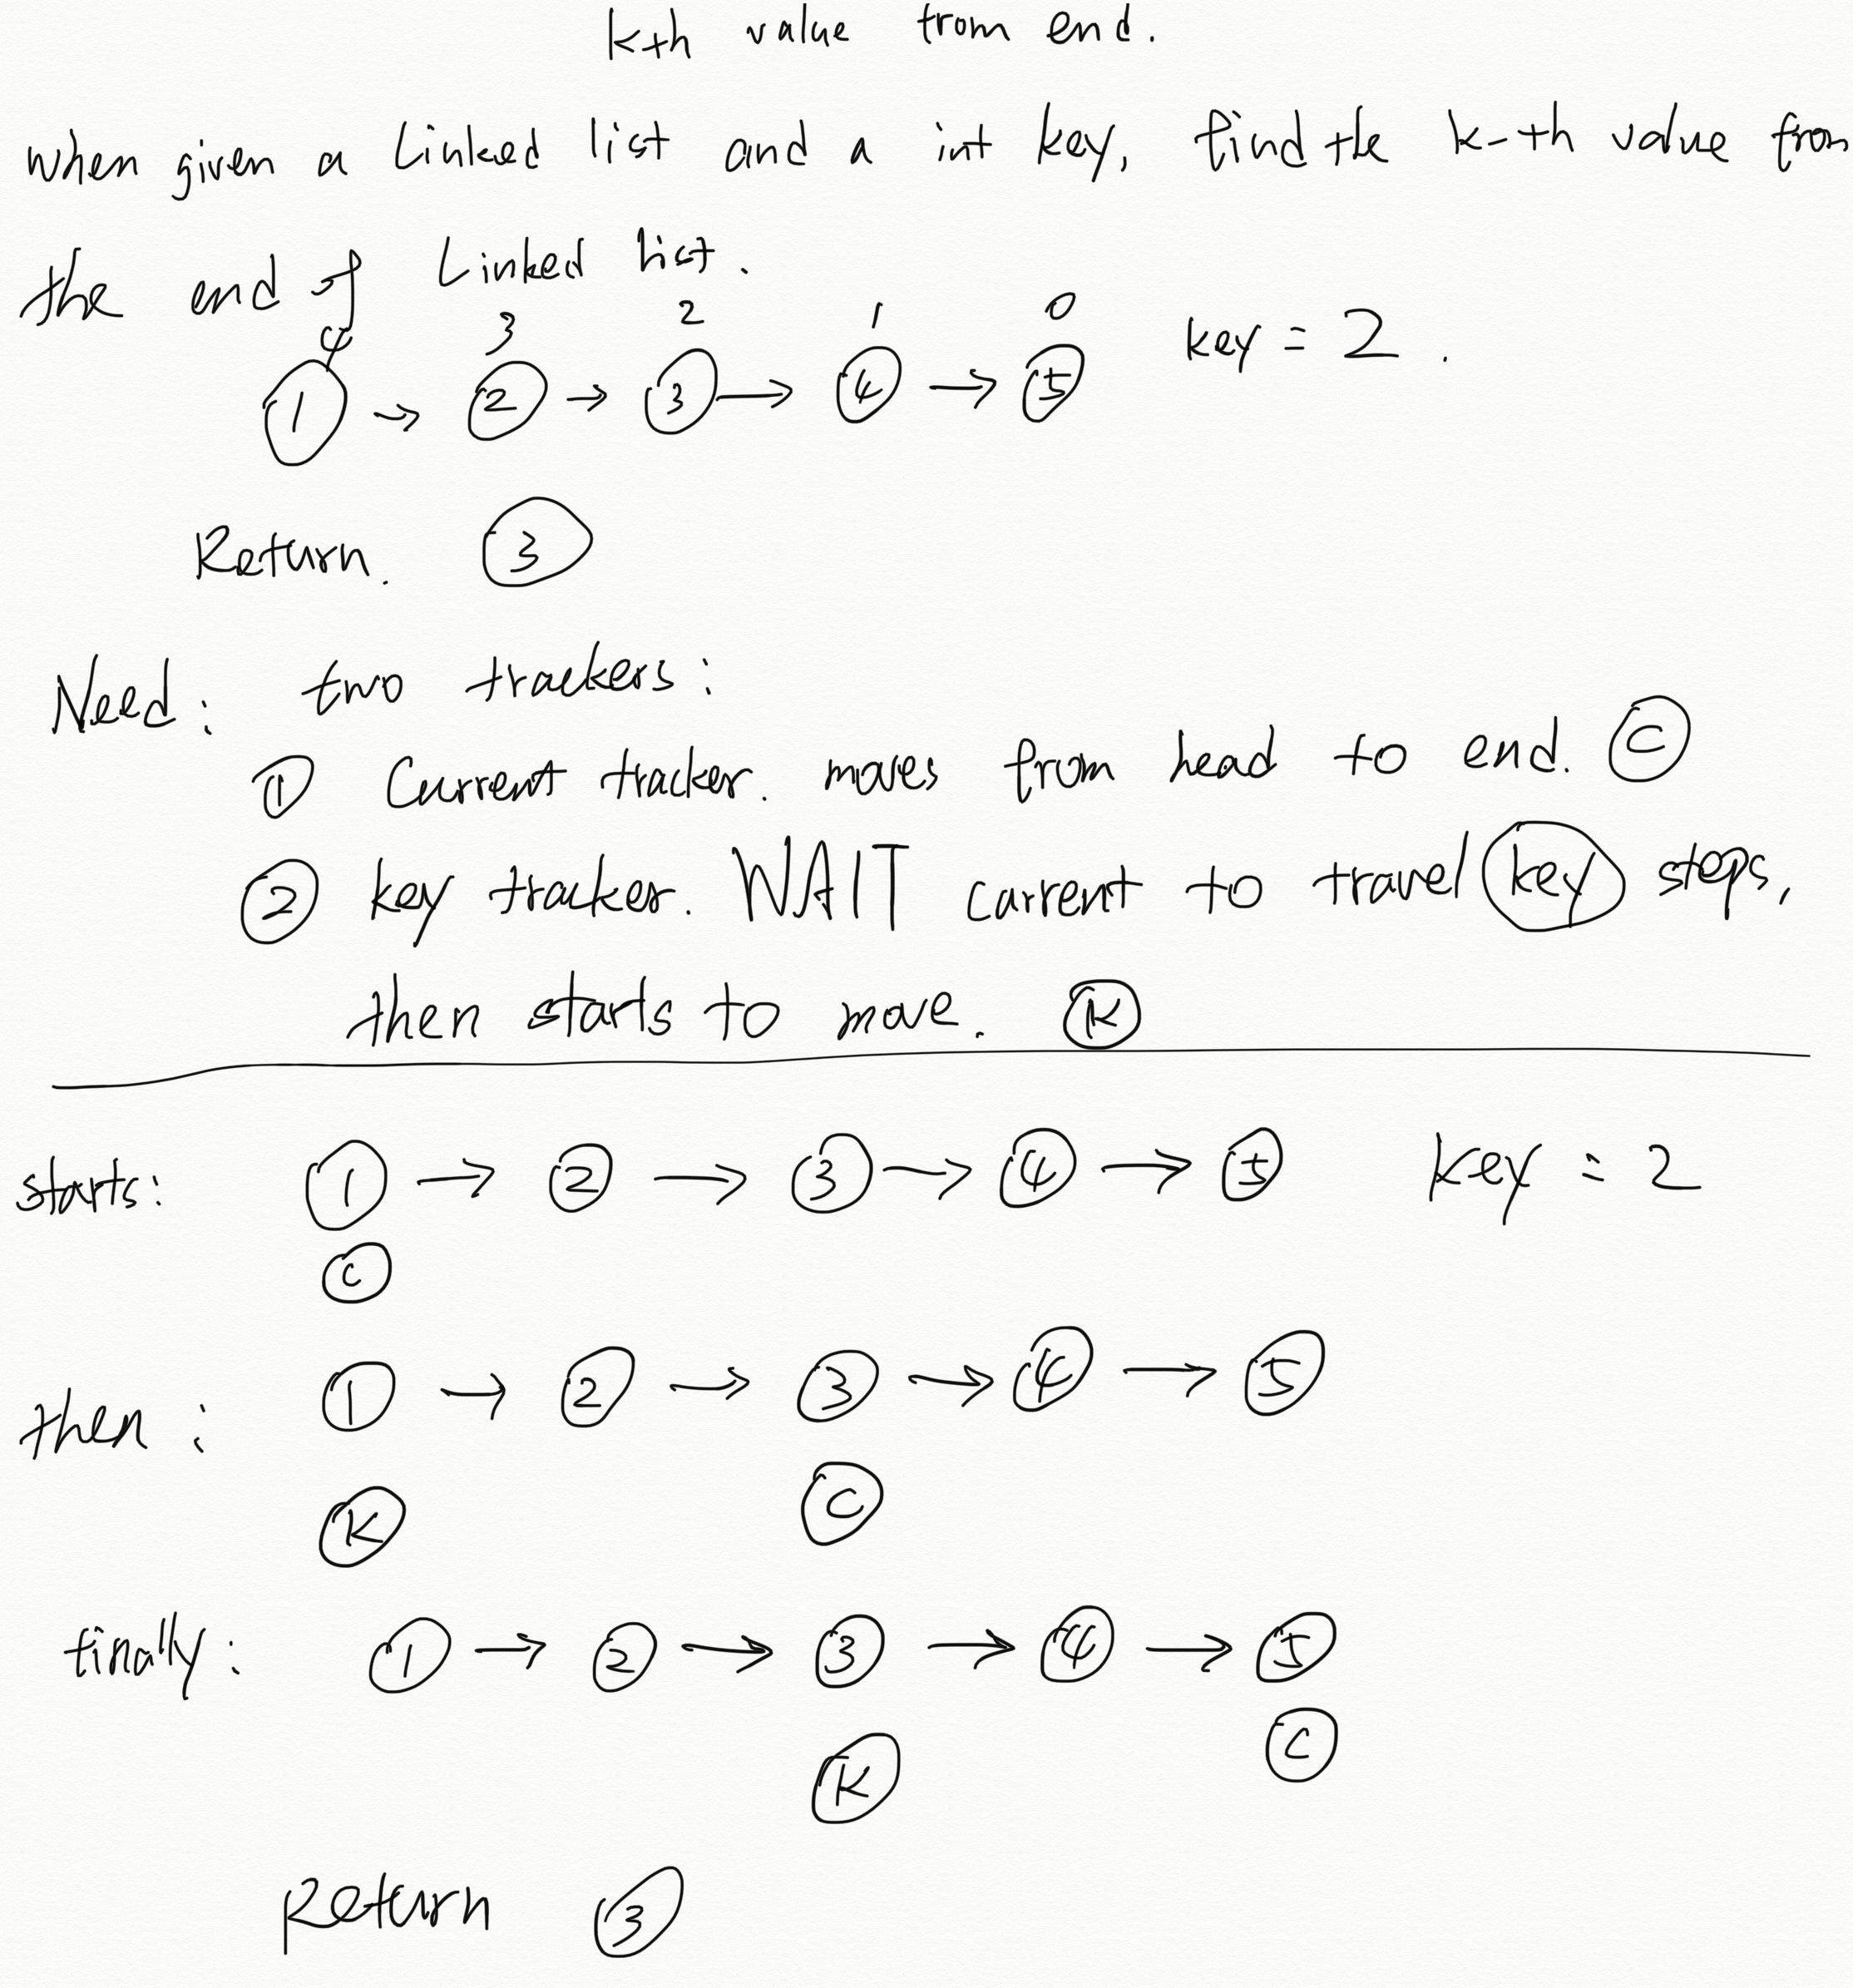 kth value from end.
when given a Linked list and a int key, find the k-th value from
the end of Linked list.
4 3 2 1 0
1 → 2 → 3 → 4 → 5 key = 2.
Return. 3
Need: two trackers:
① Current tracker. moves from head to end. C
② key tracker. WAIT current to travel key steps,
then starts to move. K
starts: 1 → 2 → 3 → 4 → 5 key = 2
C
then: 1 → 2 → 3 → 4 → 5
K C
finally: 1 → 2 → 3 → 4 → 5
K C
Return 3